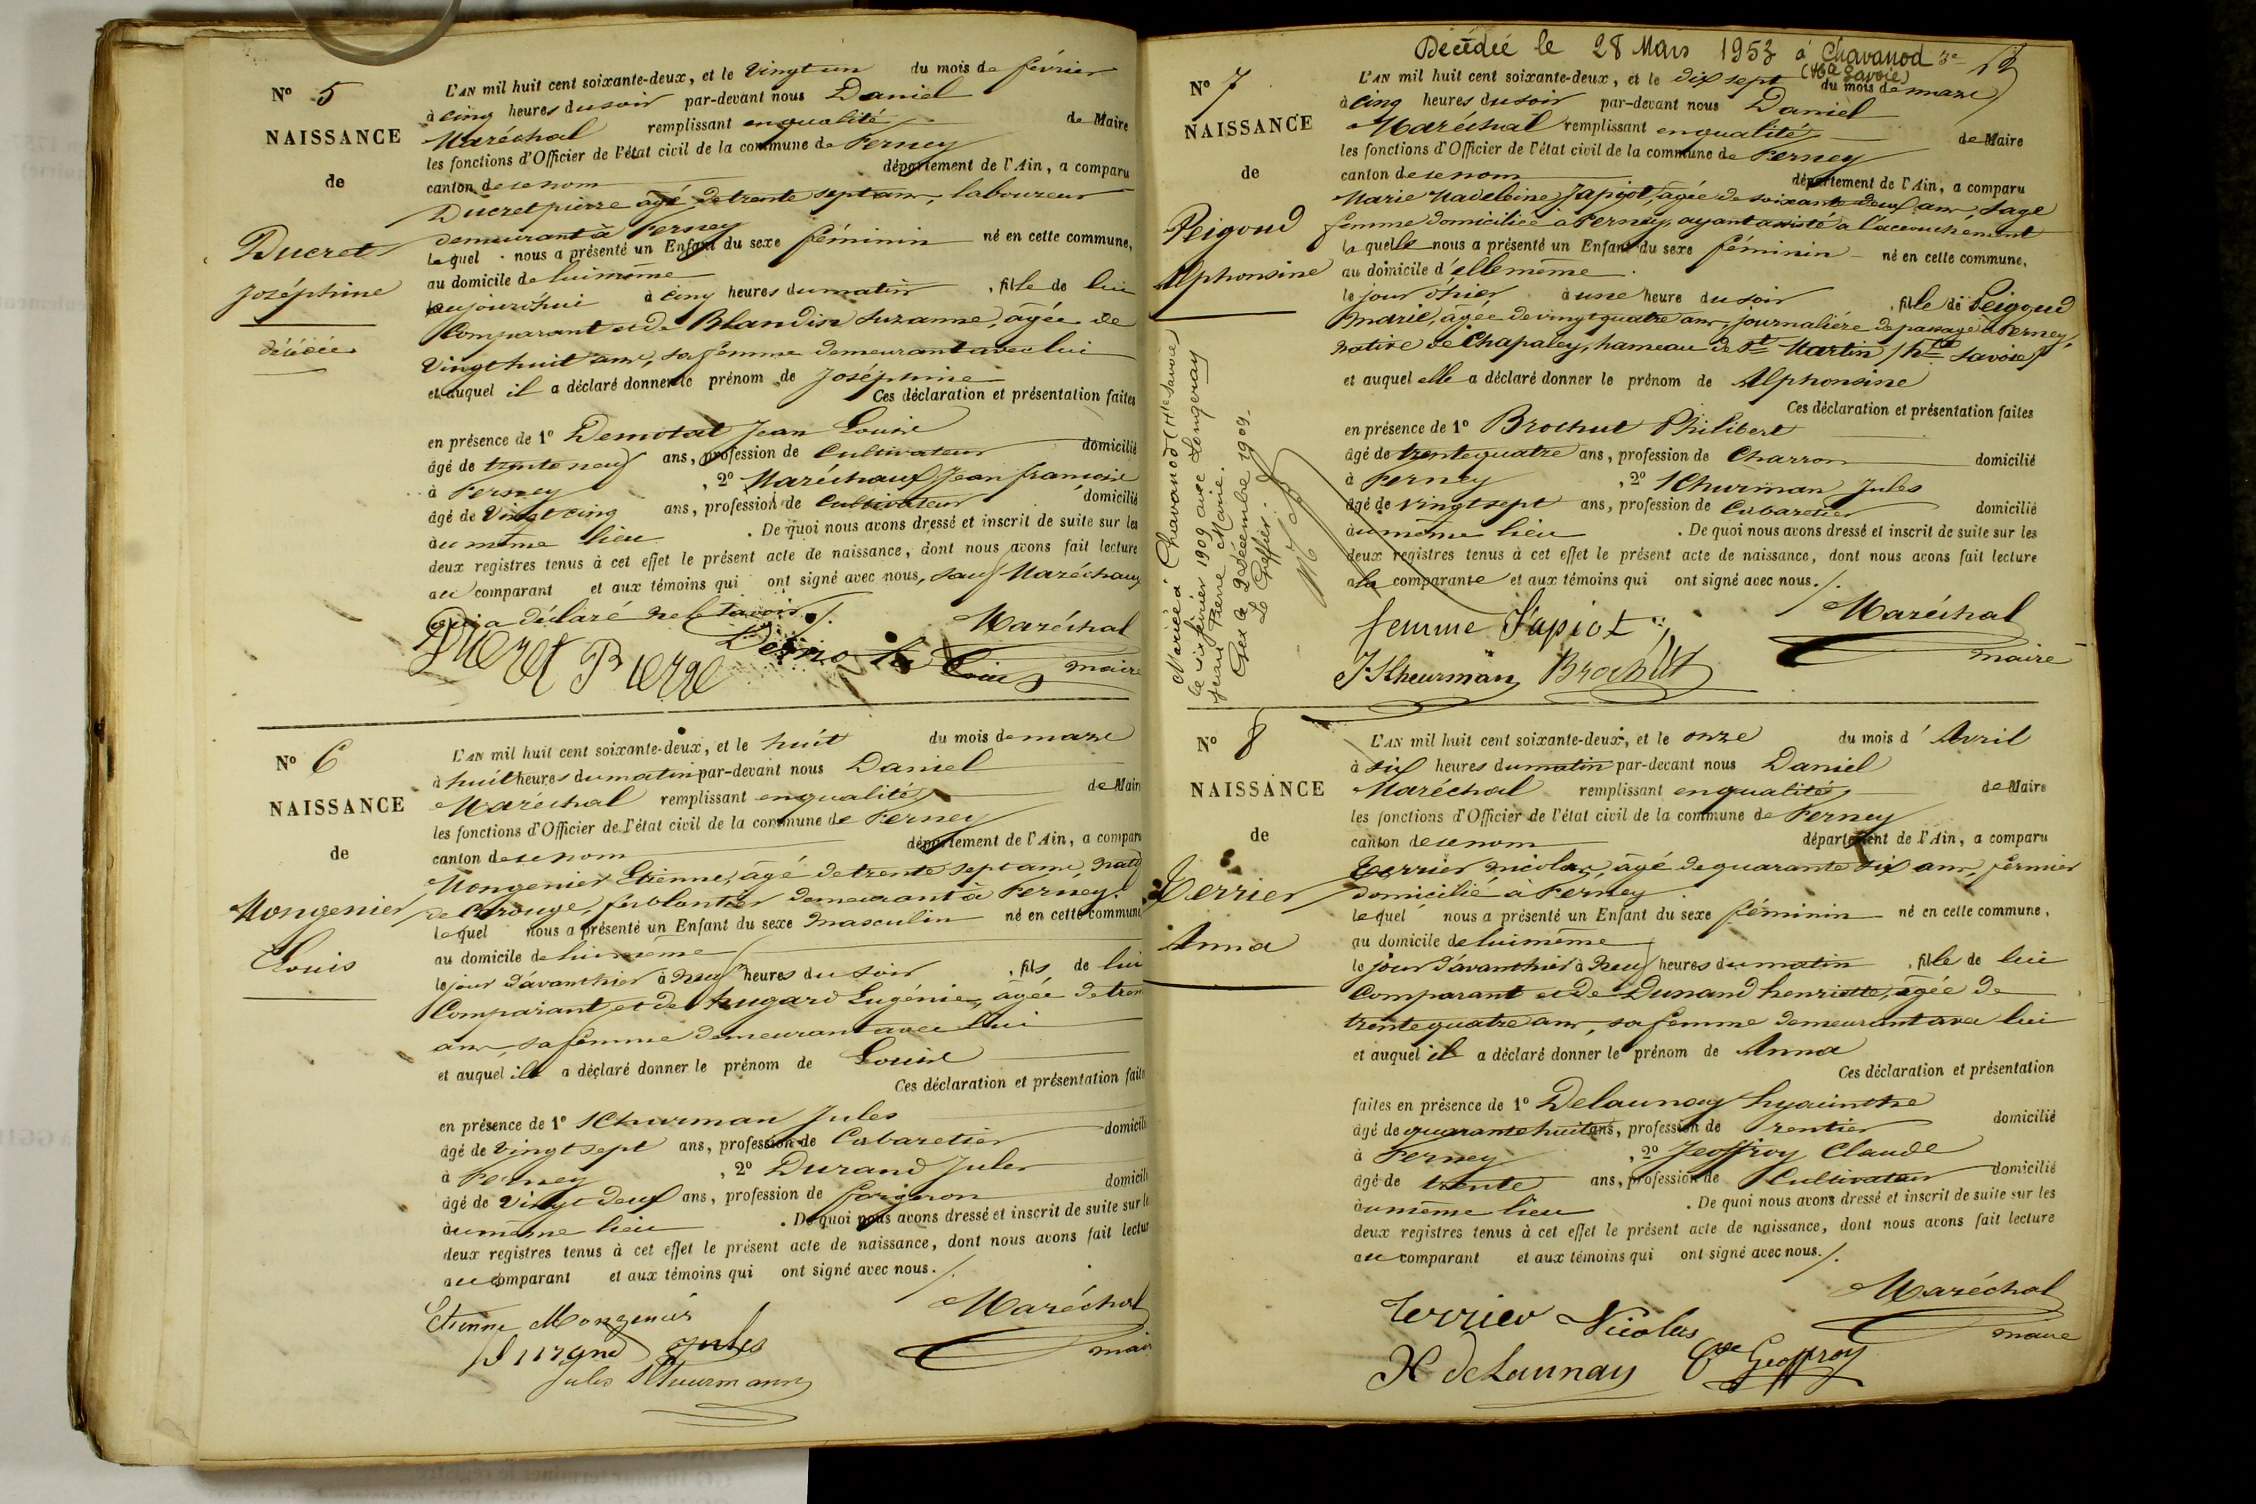 N° 5
NAISSANCE
de
Ducret
Joséphine
décédée
L'AN mil huit cent soixante-deux, et le vingt un du mois de février
à cinq heures du soir par-devant nous Daniel
Maréchal remplissant en qualité de Maire
les fonctions d'Officier de l'état civil de la commune de Ferney
canton de ce nom département de l'Ain, a comparu
Ducret pierre âgé de trente sept ans, laboureur
demeurant à Ferney
lequel nous a présenté un Enfant du sexe féminin né en cette commune,
au domicile de lui même
aujourd'hui à cinq heures du matin, fille de lui
Comparant et de Blandin Suzanne, âgée de
vingt huit ans, sa femme demeurant avec lui
et auquel il a déclaré donner le prénom de Joséphine
Ces déclaration et présentation faites
en présence de 1° Demotal Jean Louis
âgé de trente neuf ans, profession de Cultivateur domicilié
à Ferney, 2° Maréchaux Jean françois
âgé de vingt cinq ans, profession de Cultivateur domicilié
au même lieu. De quoi nous avons dressé et inscrit de suite sur les
deux registres tenus à cet effet le présent acte de naissance, dont nous avons fait lecture
au comparant et aux témoins qui ont signé avec nous, sauf Maréchaux
qui a déclaré ne le savoir ./.
Maréchal
Ducret Pierre
Louis
maire
N° 6
NAISSANCE
de
Mongenier
Louis
L'AN mil huit cent soixante-deux, et le huit du mois de mars
à huit heures du matin par-devant nous Daniel
Maréchal remplissant en qualité de Maire
les fonctions d'Officier de l'état civil de la commune de Ferney
canton de ce nom département de l'Ain, a comparu
Mongenier Etienne, âgé de trente sept ans, natif
de Carouge, ferblantier demeurant à Ferney.
lequel nous a présenté un Enfant du sexe masculin né en cette commune
au domicile de lui même
le jour d'avant hier à neuf heures du soir, fils de lui
Comparant et de hugard Eugénie, âgée de trente
ans, sa femme demeurant avec lui
et auquel il a déclaré donner le prénom de Louis
Ces déclaration et présentation faites
en présence de 1° Jules
âgé de vingt sept ans, profession de Cabaretier domicilié
à Ferney, 2° Durand Jules
âgé de vingt deux ans, profession de forgeron domicilié
au même lieu. De quoi nous avons dressé et inscrit de suite sur les
deux registres tenus à cet effet le présent acte de naissance, dont nous avons fait lecture
au comparant et aux témoins qui ont signé avec nous. /.
Etienne Mongenier
Maréchal
Durand Jules
maire
Jules
Décédée le 28 Mars 1953 à Chavanod
(Hte Savoie)
N° 7
NAISSANCE
de
Peigoud
Alphonsine
Mariée à Chavanod (Hte Savoie)
le six février 1909 avec Longeray
Jean Pierre Marie.
Gex le 2 décembre 1909.
Le Greffier.
L'AN mil huit cent soixante-deux, et le dix sept du mois de mars
à cinq heures du soir par-devant nous Daniel
Maréchal remplissant en qualité de Maire
les fonctions d'Officier de l'état civil de la commune de Ferney
canton de ce nom département de l'Ain, a comparu
Marie Madeleine Japiot, âgée de soixante deux ans, sage
femme domiciliée à Ferney, ayant assisté à l'accouchement
laquelle nous a présenté un Enfant du sexe féminin né en cette commune,
au domicile d'elle même.
le jour d'hier à une heure du soir, fille de Peigoud
marie, âgée de vingt quatre ans, journalière de passage à Ferney,
native de Chapaley, hameau de St Martin (hte Savoie)
et auquel elle a déclaré donner le prénom de Alphonsine
Ces déclaration et présentation faites
en présence de 1° Brochut Philibert
âgé de trente quatre ans, profession de Charron domicilié
à Ferney, 2° Jules
âgé de vingt sept ans, profession de Cabaretier domicilié
au même lieu. De quoi nous avons dressé et inscrit de suite sur les
deux registres tenus à cet effet le présent acte de naissance, dont nous avons fait lecture
à la comparante et aux témoins qui ont signé avec nous. /.
femme Japiot
Maréchal
Brochut
maire
N° 8
NAISSANCE
de
Terrier
Anna
L'AN mil huit cent soixante-deux, et le onze du mois d'Avril
à six heures du matin par-devant nous Daniel
Maréchal remplissant en qualité de Maire
les fonctions d'Officier de l'état civil de la commune de Ferney
canton de ce nom département de l'Ain, a comparu
Terrier nicolas, âgé de quarante six ans, fermier
domicilié à Ferney.
lequel nous a présenté un Enfant du sexe féminin né en cette commune,
au domicile de lui même
le jour d'avant hier à neuf heures du matin, fille de lui
Comparant et de Dunand henriette, âgée de
trente quatre ans, sa femme demeurant avec lui
et auquel il a déclaré donner le prénom de Anna
Ces déclaration et présentation
faites en présence de 1° Delaunay hyacinthe
âgé de quarante huit ans, profession de rentier domicilié
à Ferney, 2° Jeoffroy Claude
âgé de trente ans, profession de Cultivateur domicilié
au même lieu. De quoi nous avons dressé et inscrit de suite sur les
deux registres tenus à cet effet le présent acte de naissance, dont nous avons fait lecture
au comparant et aux témoins qui ont signé avec nous. /.
Terrier Nicolas
Maréchal
H delaunay Cde Geoffroy
maire